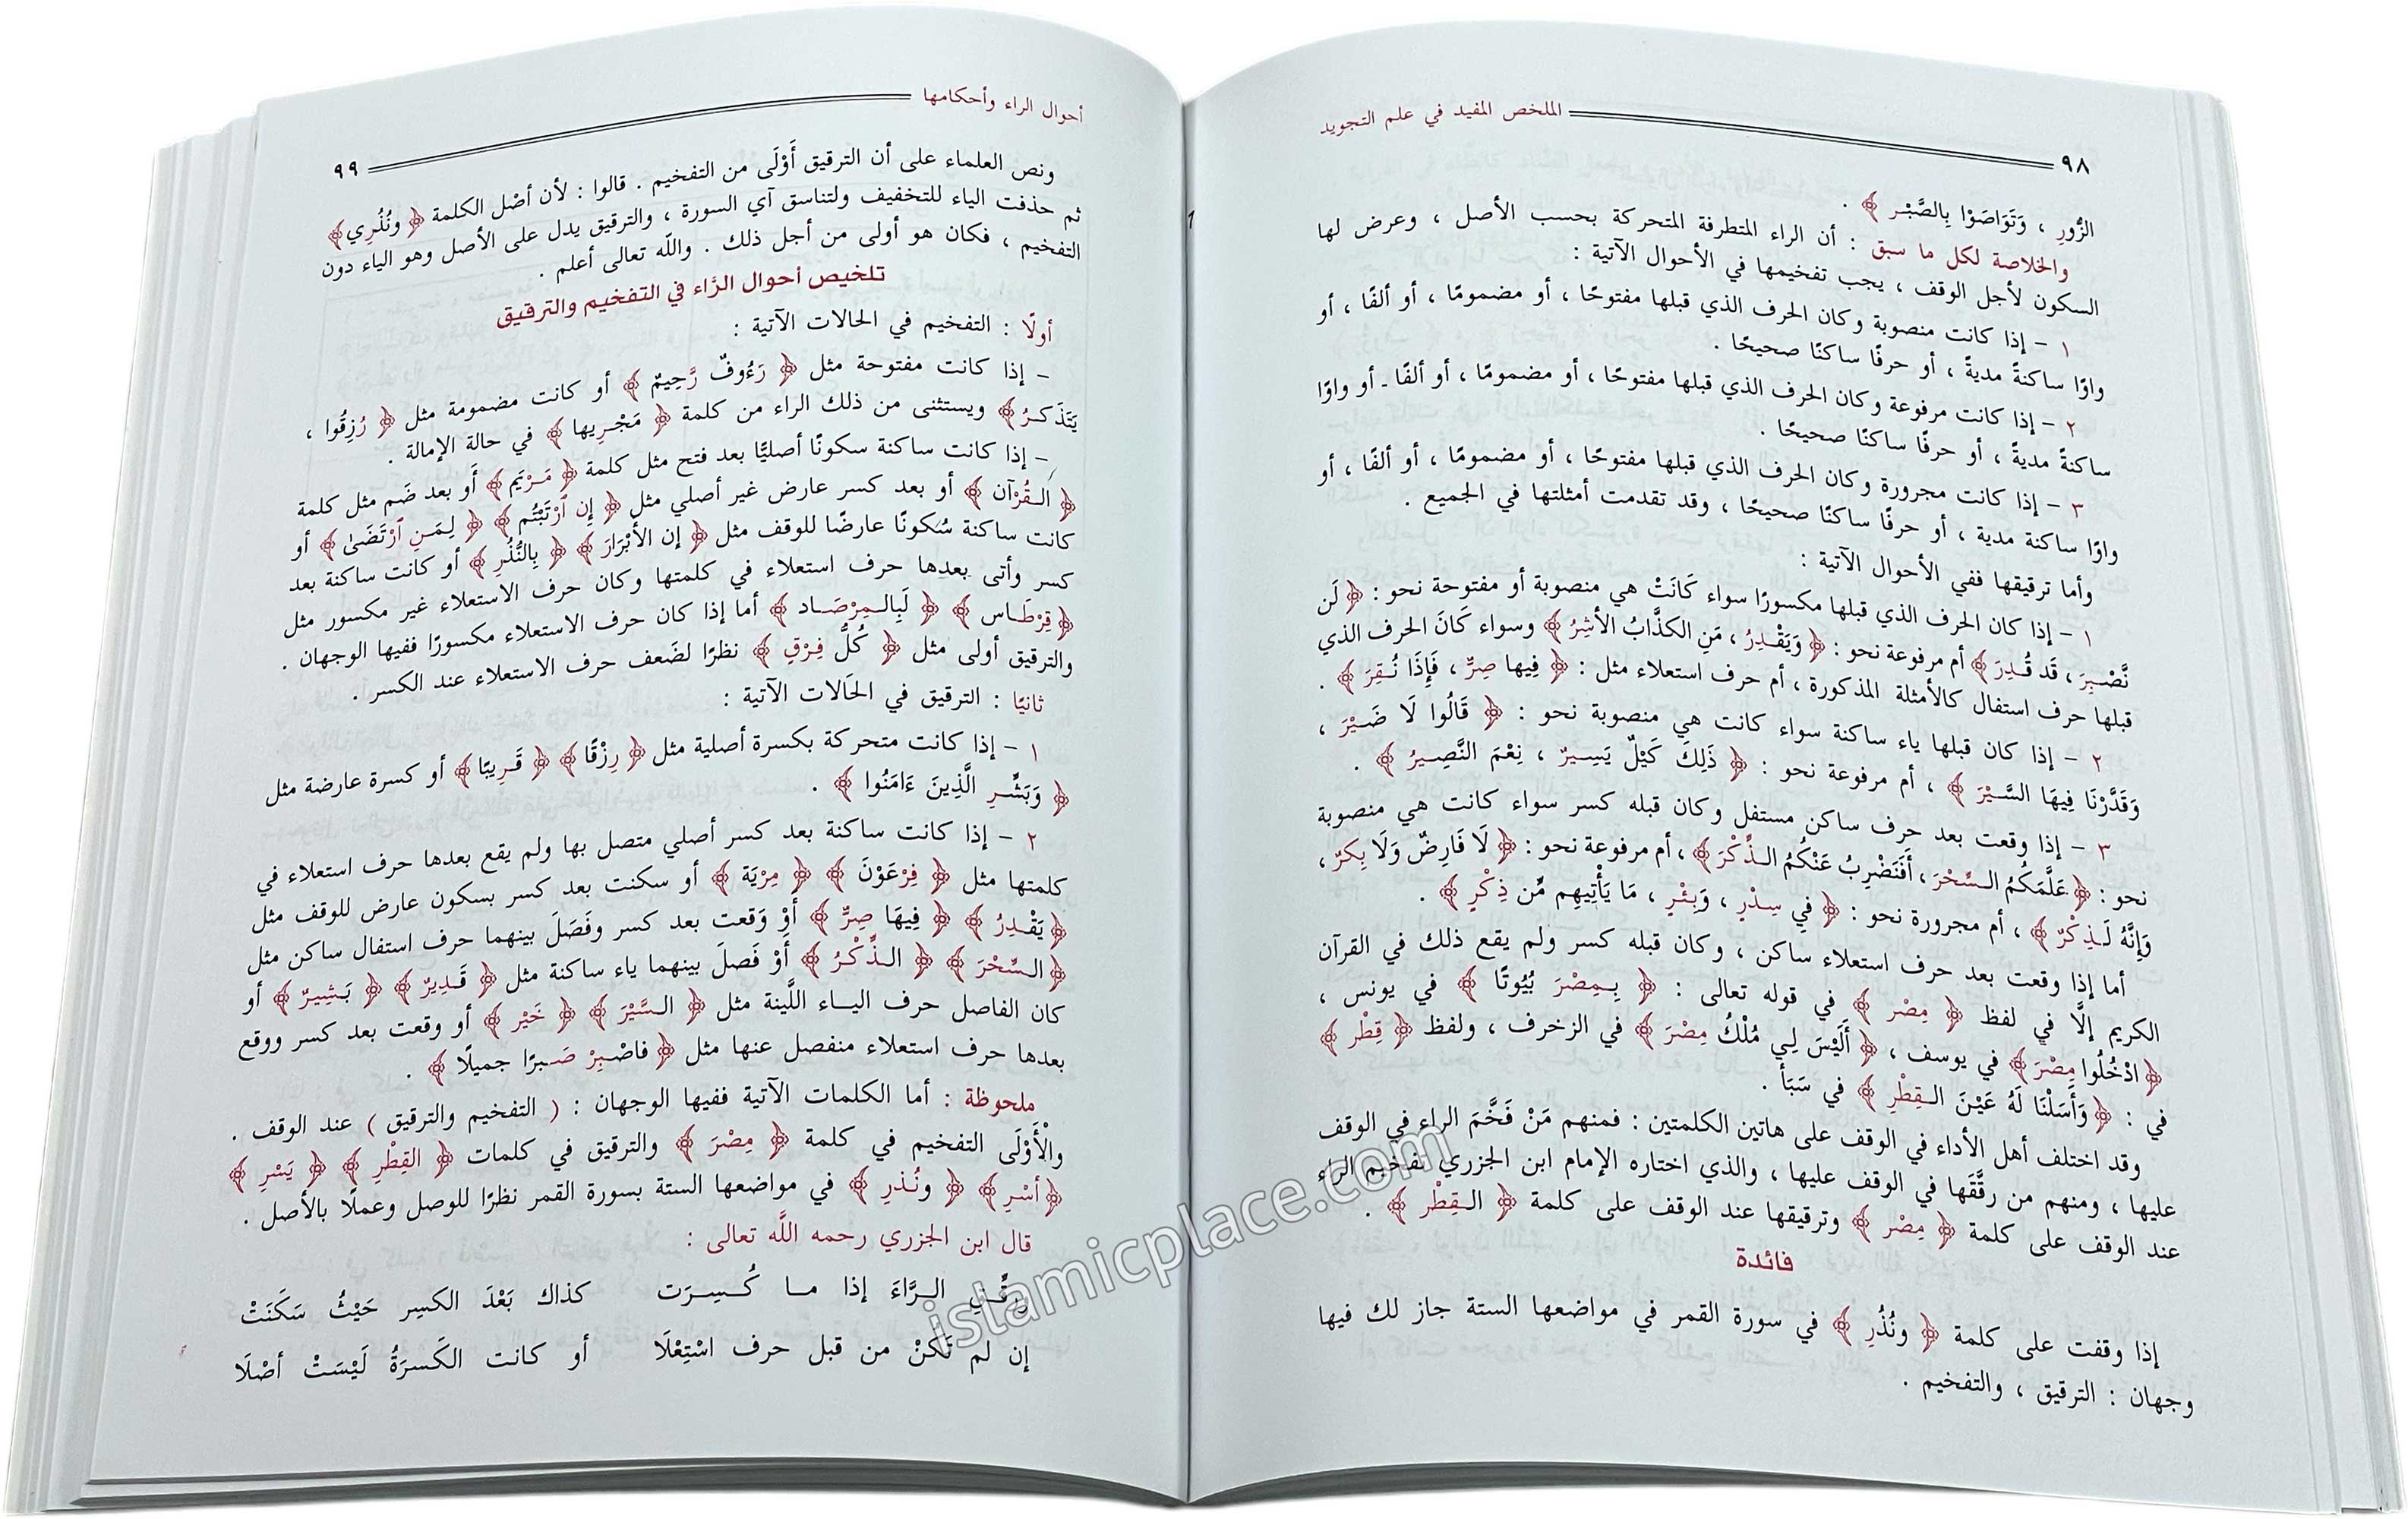 الملخص المفيد في علم التجويد
٩٨
الزُّورِ ، وَتَوَاصَوْا بِالصَّبْرِ ﴾ .
والخلاصة لكل ما سبق : أن الراء المتطرفة المتحركة بحسب الأصل ، وعرض لها
السكون لأجل الوقف ، يجب تفخيمها في الأحوال الآتية :
١ – إذا كانت منصوبة وكان الحرف الذي قبلها مفتوحًا ، أو مضمومًا ، أو ألفًا ، أو
واوًا ساكنةً مديةً ، أو حرفًا ساكنًا صحيحًا .
٢ – إذا كانت مرفوعة وكان الحرف الذي قبلها مفتوحًا ، أو مضمومًا ، أو ألفًا - أو واوًا
ساكنةً مديةً ، أو حرفًا ساكنًا صحيحًا .
٣ – إذا كانت مجرورة وكان الحرف الذي قبلها مفتوحًا ، أو مضمومًا ، أو ألفًا ، أو
واوًا ساكنة مدية ، أو حرفًا ساكنًا صحيحًا ، وقد تقدمت أمثلتها في الجميع .
وأما ترقيقها ففي الأحوال الآتية :
١ – إذا كان الحرف الذي قبلها مكسورًا سواء كَانَتْ هي منصوبة أو مفتوحة نحو : ﴿ لَن
نَّصْبِرَ ، قَد قُدِرَ ﴾ أم مرفوعة نحو : ﴿ وَيَقْدِرُ ، مَنِ الكذَّابُ الأشِرُ ﴾ وسواء كَانَ الحرف الذي
قبلها حرف استفال كالأمثلة المذكورة ، أم حرف استعلاء مثل : ﴿ فِيها صِرٌّ ، فَإِذَا نُقِرَ ﴾ .
٢ – إذا كان قبلها ياء ساكنة سواء كانت هي منصوبة نحو : ﴿ قَالُوا لَا ضَيْرَ ،
وَقَدَّرْنَا فِيهَا السَّيْرَ ﴾ ، أم مرفوعة نحو : ﴿ ذَلِكَ كَيْلٌ يَسِيرٌ ، نِعْمَ النَّصِيرُ ﴾ .
٣ – إذا وقعت بعد حرف ساكن مستفل وكان قبله كسر سواء كانت هي منصوبة
نحو : ﴿ عَلَّمَكُمُ السِّحْرَ ، أَفَنَضْرِبُ عَنْكُمُ الذِّكْرَ ﴾ ، أم مرفوعة نحو : ﴿ لَا فَارِضٌ وَلَا بِكرٌ ،
وَإِنَّهُ لَذِكْرٌ ﴾ ، أم مجرورة نحو : ﴿ في سِدْرٍ ، وَبِئْرٍ ، مَا يَأْتِيهِم مِّن ذِكْرٍ ﴾ .
أما إذا وقعت بعد حرف استعلاء ساكن ، وكان قبله كسر ولم يقع ذلك في القرآن
الكريم إلَّا في لفظ ﴿ مِصْر ﴾ في قوله تعالى : ﴿ بِمِصْرَ بُيُوتًا ﴾ في يونس ،
﴿ ادْخُلُوا مِصْرَ ﴾ في يوسف ، ﴿ أَلَيْسَ لِي مُلْكُ مِصْرَ ﴾ في الزخرف ، ولفظ ﴿ قِطْر ﴾
في : ﴿ وَأَسَلْنَا لَهُ عَيْنَ القِطْرِ ﴾ في سَبَأ .
وقد اختلف أهل الأداء في الوقف على هاتين الكلمتين : فمنهم مَنْ فَخَّمَ الراء في الوقف
عليها ، ومنهم من رقَّقَها في الوقف عليها ، والذي اختاره الإمام ابن الجزري تفخيم الراء
عند الوقف على كلمة ﴿ مِصْر ﴾ وترقيقها عند الوقف على كلمة ﴿ القِطْر ﴾ .
فائدة
إذا وقفت على كلمة ﴿ ونُذُرِ ﴾ في سورة القمر في مواضعها الستة جاز لك فيها
وجهان : الترقيق ، والتفخيم .
أحوال الراء وأحكامها
٩٩
ونص العلماء على أن الترقيق أَوْلَى من التفخيم . قالوا : لأن أصْل الكلمة ﴿ ونُذُرِي ﴾
ثم حذفت الياء للتخفيف ولتناسق آي السورة ، والترقيق يدل على الأصل وهو الياء دون
التفخيم ، فكان هو أولى من أجل ذلك . واللّه تعالى أعلم .
تلخيص أحوال الرَّاء في التفخيم والترقيق
أولًا : التفخيم في الحالات الآتية :
– إذا كانت مفتوحة مثل ﴿ رَءُوفٌ رَّحِيمٌ ﴾ أو كانت مضمومة مثل ﴿ رُزِقُوا ،
يَتَذَكرُ ﴾ ويستثنى من ذلك الراء من كلمة ﴿ مَجْرِيها ﴾ في حالة الإمالة .
– إذا كانت ساكنة سكونًا أصليًّا بعد فتح مثل كلمة ﴿ مَرْيَم ﴾ أو بعد ضَم مثل كلمة
﴿ القُرْآن ﴾ أو بعد كسر عارض غير أصلي مثل ﴿ إِن ٱرْتَبْتُم ﴾ ﴿ لِمَنِ ٱرْتَضَىٰ ﴾ أو
كانت ساكنة سُكونًا عارضًا للوقف مثل ﴿ إن الأَبْرَارَ ﴾ ﴿ بِالنُّذُرِ ﴾ أو كانت ساكنة بعد
كسر وأتى بعدها حرف استعلاء في كلمتها وكان حرف الاستعلاء غير مكسور مثل
﴿ قِرْطَاس ﴾ ﴿ لَبِالمِرْصَاد ﴾ أما إذا كان حرف الاستعلاء مكسورًا ففيها الوجهان .
والترقيق أولى مثل ﴿ كُلُّ فِرْقٍ ﴾ نظرًا لضَعف حرف الاستعلاء عند الكسر .
ثانيًا : الترقيق في الحَالات الآتية :
١ – إذا كانت متحركة بكسرة أصلية مثل ﴿ رِزْقًا ﴾ ﴿ قَرِيبًا ﴾ أو كسرة عارضة مثل
﴿ وَبَشِّرِ الَّذِينَ ءَامَنُوا ﴾ .
٢ – إذا كانت ساكنة بعد كسر أصلي متصل بها ولم يقع بعدها حرف استعلاء في
كلمتها مثل ﴿ فِرْعَوْنَ ﴾ ﴿ مِرْيَة ﴾ أو سكنت بعد كسر بسكون عارض للوقف مثل
﴿ يَقْدِرُ ﴾ ﴿ فِيهَا صِرٌّ ﴾ أَوْ وَقعت بعد كسر وفَصَلَ بينهما حرف استفال ساكن مثل
﴿ السِّحْرَ ﴾ ﴿ الذِّكْرُ ﴾ أَوْ فَصلَ بينهما ياء ساكنة مثل ﴿ قَدِيرٌ ﴾ ﴿ بَشِيرٌ ﴾ أو
كان الفاصل حرف الياء اللَّينة مثل ﴿ السَّيْرَ ﴾ ﴿ خَيْر ﴾ أو وقعت بعد كسر ووقع
بعدها حرف استعلاء منفصل عنها مثل ﴿ فاصْبِرْ صَبرًا جميلًا ﴾ .
ملحوظة : أما الكلمات الآتية ففيها الوجهان : ( التفخيم والترقيق ) عند الوقف .
والْأَوْلَى التفخيم في كلمة ﴿ مِصْرَ ﴾ والترقيق في كلمات ﴿ القِطْرِ ﴾ ﴿ يَسْرِ ﴾
﴿ أسْرِ ﴾ ﴿ ونُذرِ ﴾ في مواضعها الستة بسورة القمر نظرًا للوصل وعملًا بالأصل .
قال ابن الجزري رحمه اللَّه تعالى :
ورَقِّقِ الرَّاءَ إذا ما كُسِرَت كذاك بَعْدَ الكسِر حَيْثُ سَكَنَتْ
إن لم تَكُنْ من قبل حرف اسْتِعْلَا أو كانت الكَسرَةُ لَيْسَتْ أصْلَا
islamicplace.com